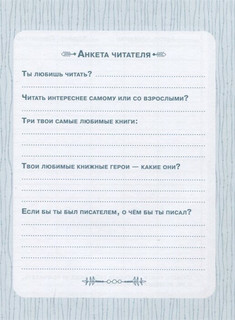 Анкета читателя
Ты любишь читать?
Читать интереснее самому или со взрослыми?
Три твои самые любимые книги:
Твои любимые книжные герои — какие они?
Если бы ты был писателем, о чём бы ты писал?